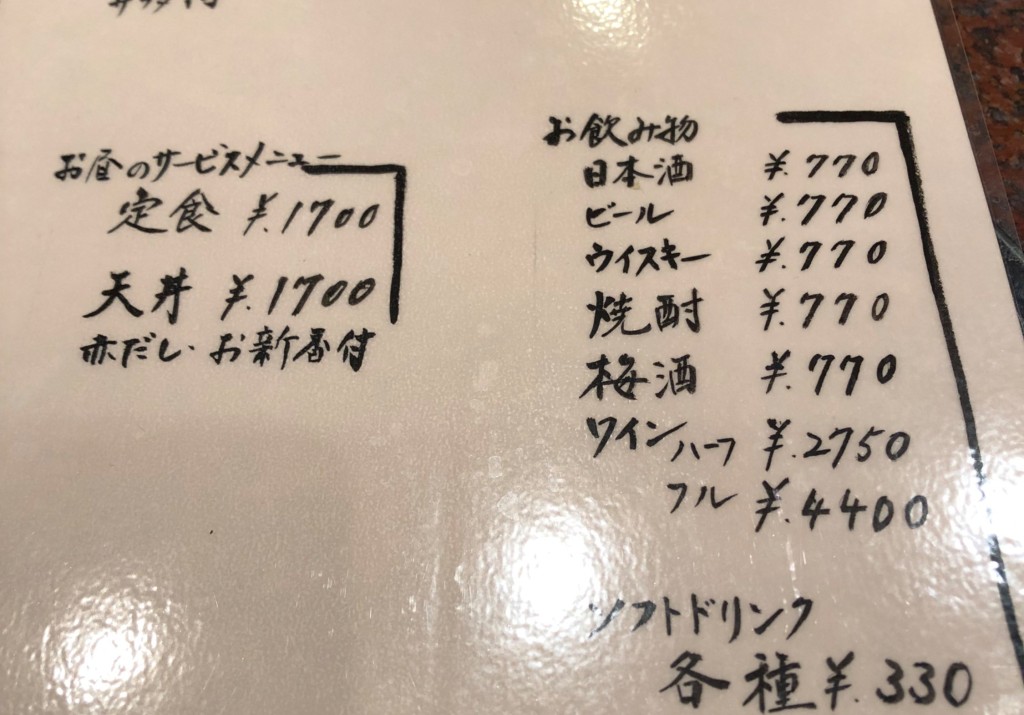 お昼のサービスメニュー
定食 ¥.1700
天丼 ¥.1700
赤だし・お新番付
お飲み物
日本酒 ¥.770
ビール ¥.770
ウイスキー ¥.770
焼酎 ¥.770
梅酒 ¥.770
ワイン ハーフ ¥.2750
フル ¥.4400
ソフトドリンク
各種 ¥.330